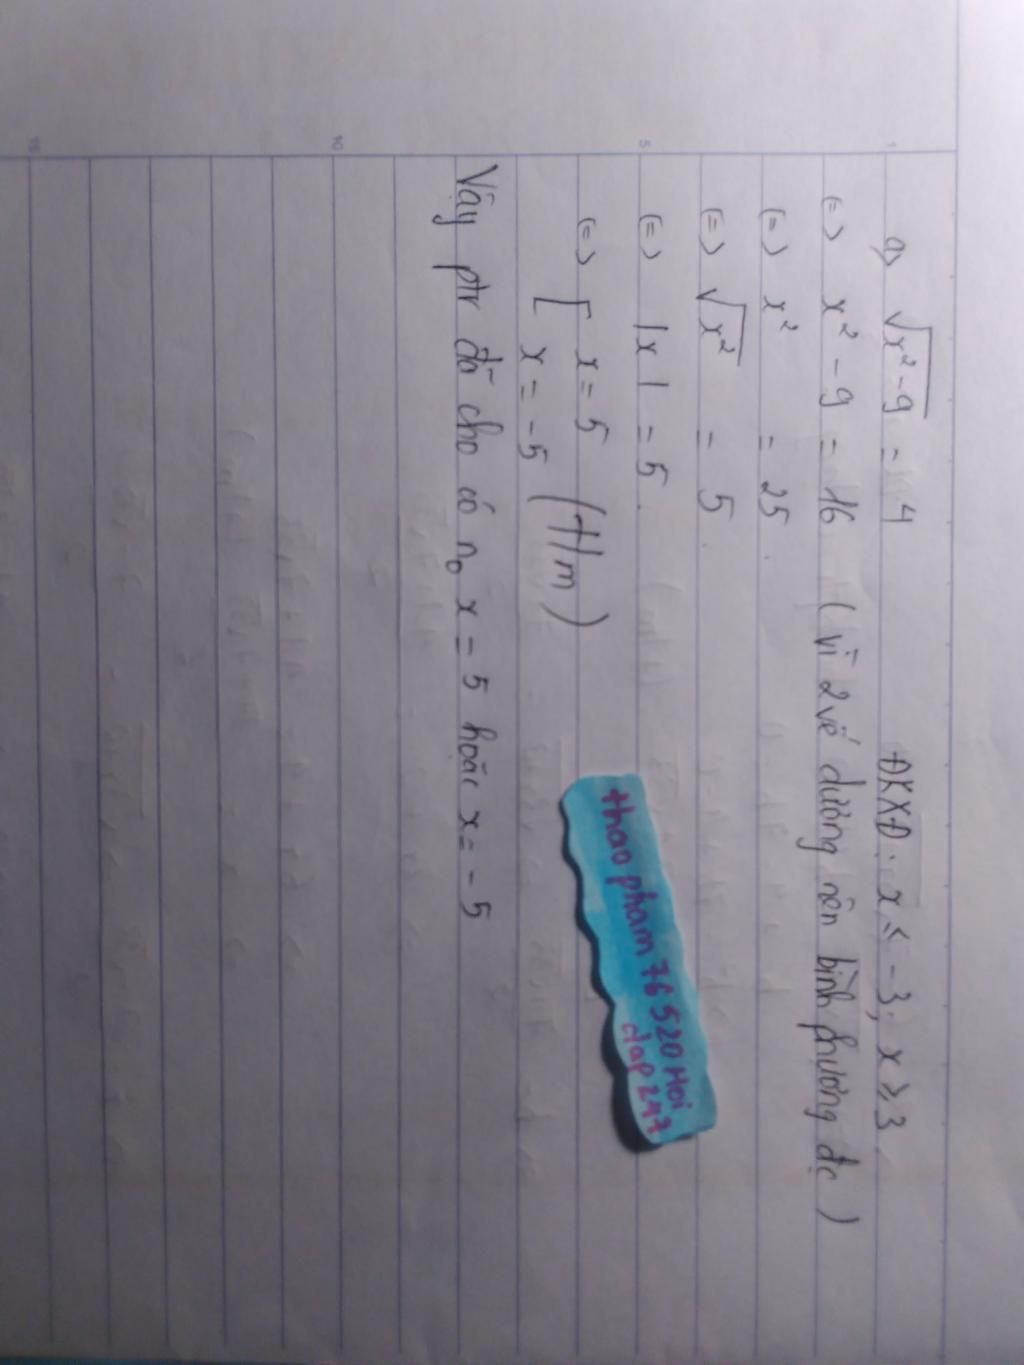 a) √x² - 9 = 4 ĐKXĐ: x ≤ -3; x ≥ 3
(=) x² - 9 = 16 (vì 2 vế dương nên bình phương đc)
(=) x² = 25.
(=) √x² = 5.
(=) |x| = 5.
(=) [ x = 5
x = -5 (t/m)
Vậy ptr đã cho có n₀ x = 5 hoặc x = -5
thao pham 76 520 Hoi
dap 247
1
5
10
15